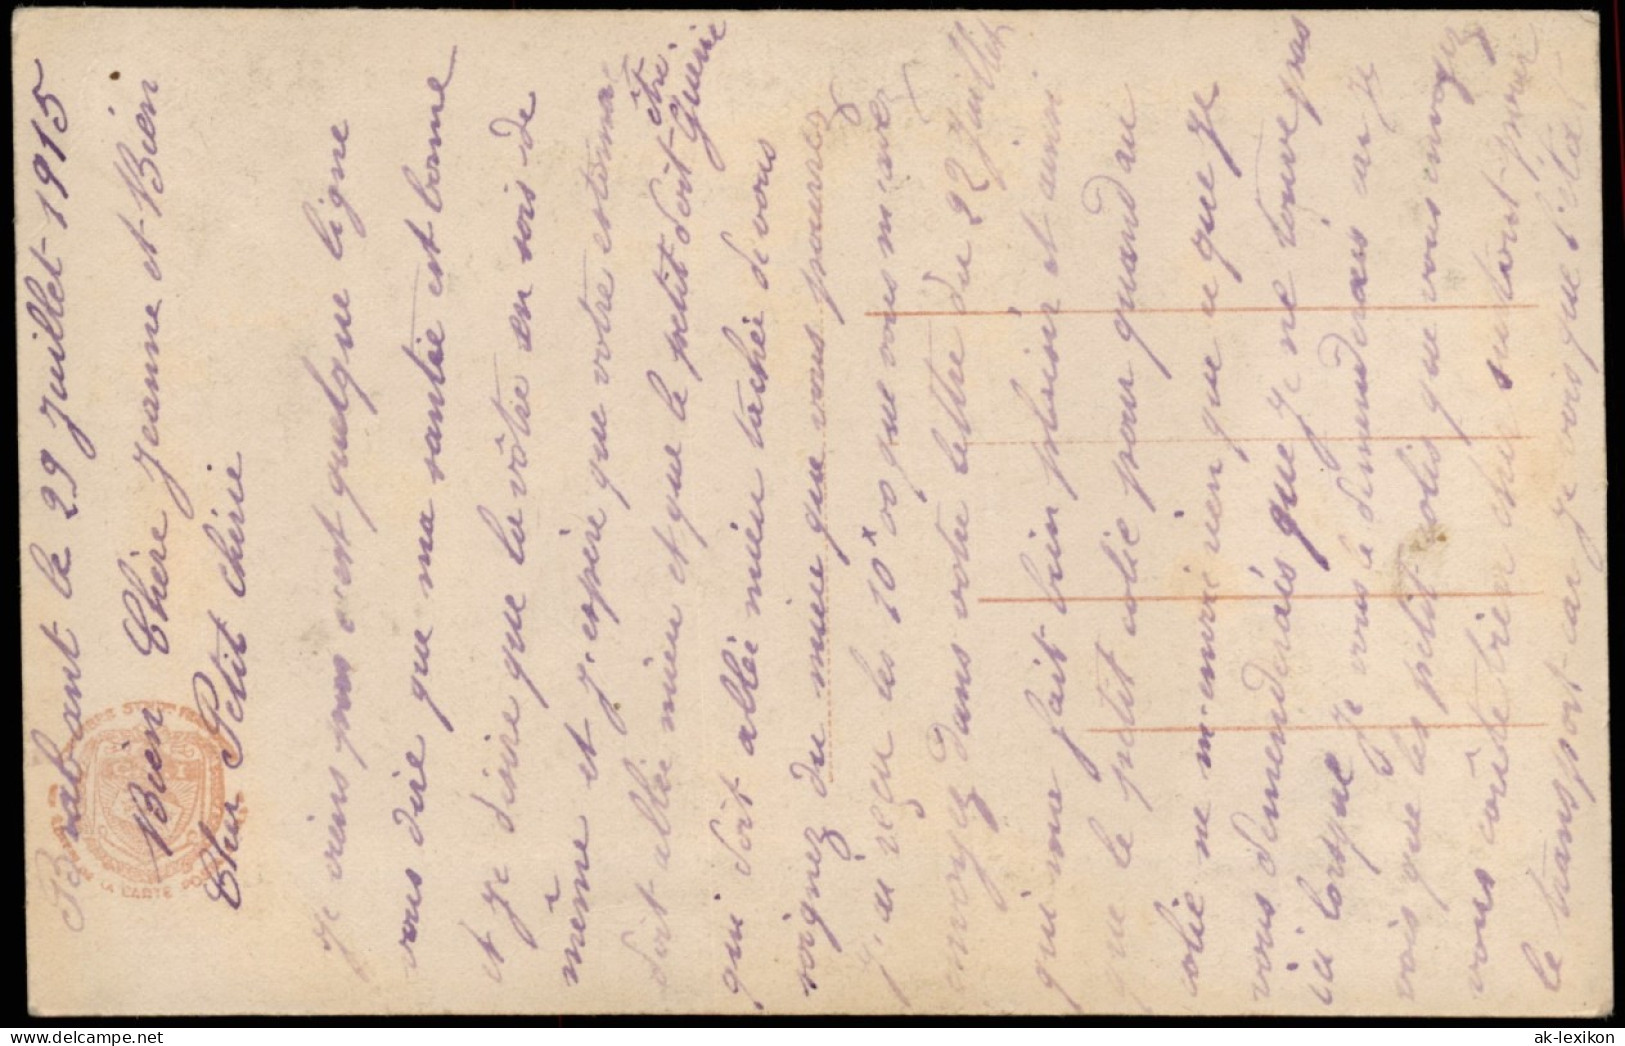 Brabant le 29 Juillet 1915
Chère Jeanne et Bien
Bien Cher Petit chérie
Je viens quelque ligne
vous dire que ma santée est bonne
et Je desire que la vôtre en sois de
même et J'espère que votre estomac
doit allée mieu et que le petit doit être
Guerie
qui doit allée mieu tachée de vous
soignez du mieu que vous pourrez
J'ai reçu les 10x00 que vous m'avez
envoyez dans votre lettre du 22 Juillet
qui me fait bien plaisir et aussi
que le petit colie pour quand au
colie ne m'envoie rien que ce que Je
vous demenderais que Je ne trouve pas
ici lorsque Je vous le demenderais car Je
vois que les petit colis que vous envoyez
vous coûte bien cher surtout pour
le transport car Je vois que l'été
LA CARTE
ak-lexikon